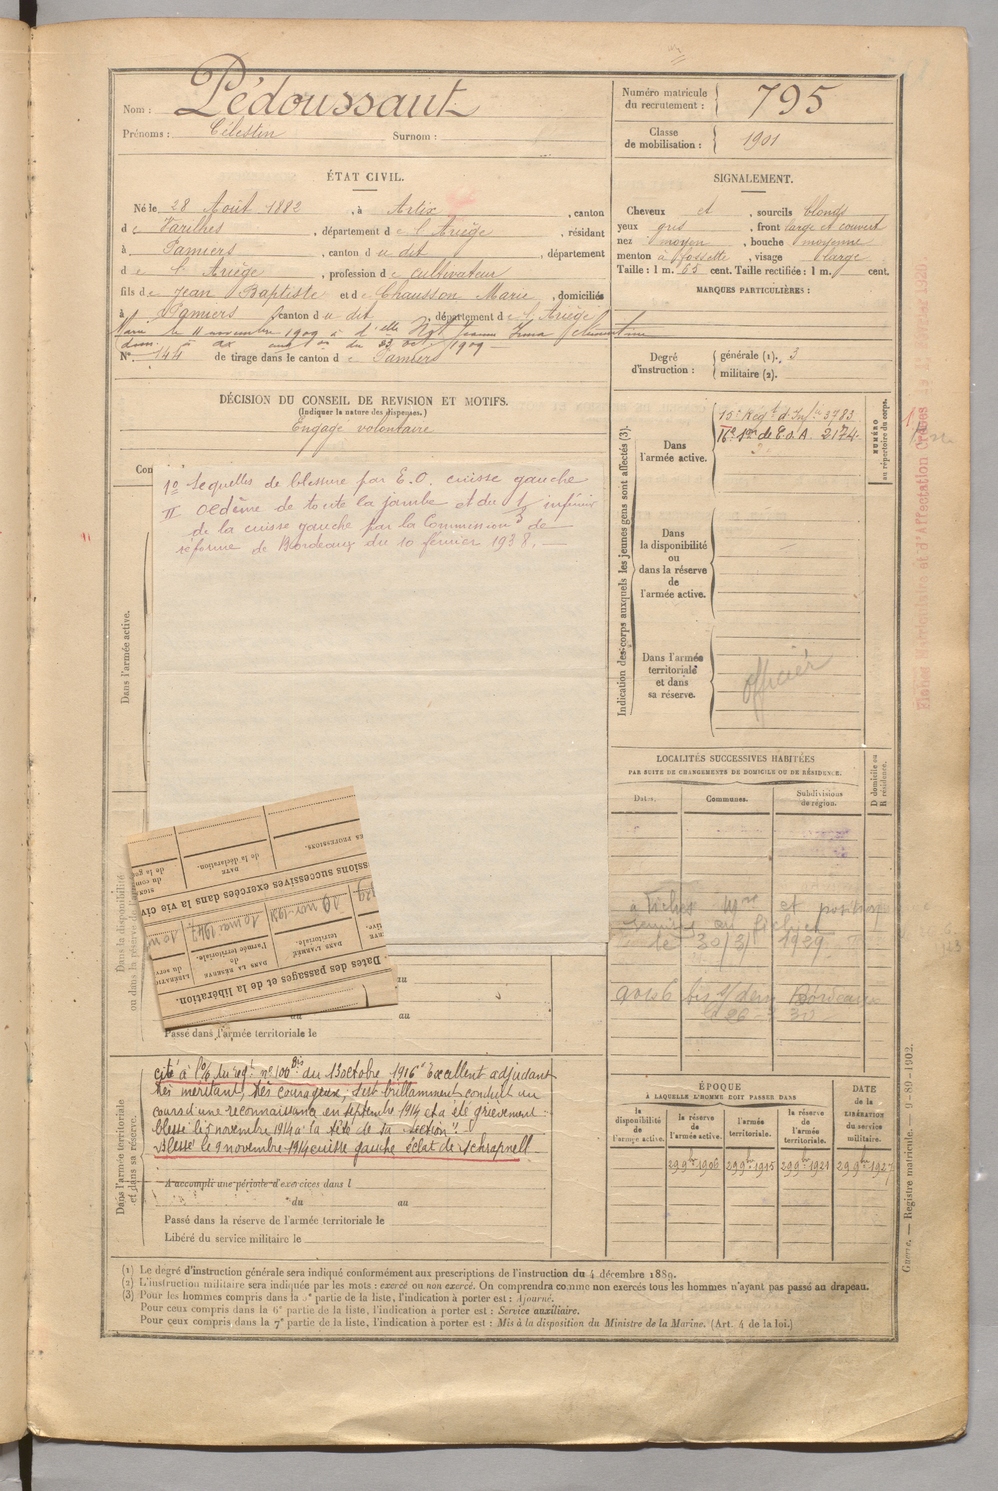 Nom : Pédoussaut
Prénoms : Célestin Surnom :
Numéro matricule du recrutement : 795
Classe de mobilisation : 1901
ÉTAT CIVIL.
Né le 28 Août 1882, à Artix, canton
de Varilhes, département de l'Ariège, résidant
à Pamiers, canton du dit, département
de l'Ariège, profession de cultivateur
fils de Jean Baptiste et de Chausson Marie, domiciliés
à Pamiers canton du dit, département de l'Ariège
Marié le 11 novembre 1909 à d'elle Irma Clémentine
dom. à ax du 23 oct 1909
N° 144 de tirage dans le canton de Pamiers
SIGNALEMENT.
Cheveux et, sourcils blonds
yeux gris, front large et couvert
nez moyen, bouche moyenne
menton à fossette, visage large
Taille : 1 m. 65 cent. Taille rectifiée : 1 m. cent.
MARQUES PARTICULIÈRES :
Degré d'instruction : générale (1). 3
militaire (2).
DÉCISION DU CONSEIL DE REVISION ET MOTIFS.
(Indiquer la nature des dispenses.)
Engagé volontaire
Con
1° Sequelles de blessure par E.O. cuisse gauche
II Oedème de toute la jambe et du 1/3 inférieur
de la cuisse gauche par la Commission de
réforme de Bordeaux du 10 février 1938. —
Dans l'armée active.
Dans la disponibilité
ou dans la réserve de l'
Indication des corps auxquels les jeunes gens sont affectés (3).
Dans l'armée active.
15e Régt d'Inf. 3783
16e Son de C.O.A. 2174
NUMÉRO au répertoire du corps.
Dans la disponibilité ou dans la réserve de l'armée active.
Dans l'armée territoriale et dans sa réserve.
officier
Fiches Matricules et d'Affectation Créées
LOCALITÉS SUCCESSIVES HABITÉES
PAR SUITE DE CHANGEMENTS DE DOMICILE OU DE RÉSIDENCE.
Dates. Communes. Subdivisions de région. D domicile ou R résidence.
à fiches et position
remises au fichier
le 30/3/1929
Bordeaux
ES PROFESSIONS.
DATE de la déclaration.
ssions successives exercées dans la vie civ
19 nov. 1921
10 mai 1947
DANS L'ARMÉE territoriale.
DANS LA RÉSERVE de l'armée territoriale.
LIBÉRATIO du serv
Dates des passages et de la libération.
au
au
Passé dans l'armée territoriale le
Dans l'armée territoriale et dans sa réserve.
cité à l'o/6 du régt n° 100 Bis du 13 octobre 1916 "Excellent adjudant
très méritant, très courageux, s'est brillamment conduit au
cours d'une reconnaissance en septembre 1914 et a été grièvement
blessé le 9 novembre 1914 à la tête de sa section".
Blessé le 9 novembre 1914 cuisse gauche éclat de schrapnell
A accompli une période d'exercices dans l
du au
Passé dans la réserve de l'armée territoriale le
Libéré du service militaire le
ÉPOQUE
À LAQUELLE L'HOMME DOIT PASSER DANS
la disponibilité de l'armée active. la réserve de l'armée active. l'armée territoriale. la réserve de l'armée territoriale.
DATE de la LIBÉRATION du service militaire.
29 9bre 1906 29 9bre 1915 29 9bre 1921 29 9bre 1927
(1) Le degré d'instruction générale sera indiqué conformément aux prescriptions de l'instruction du 4 décembre 1889.
(2) L'instruction militaire sera indiquée par les mots : exercé ou non exercé. On comprendra comme non exercés tous les hommes n'ayant pas passé au drapeau.
(3) Pour les hommes compris dans la 5e partie de la liste, l'indication à porter est : Ajourné.
Pour ceux compris dans la 6e partie de la liste, l'indication à porter est : Service auxiliaire.
Pour ceux compris dans la 7e partie de la liste, l'indication à porter est : Mis à la disposition du Ministre de la Marine. (Art. 4 de la loi.)
Guerre. — Registre matricule. — 9-89-1902.